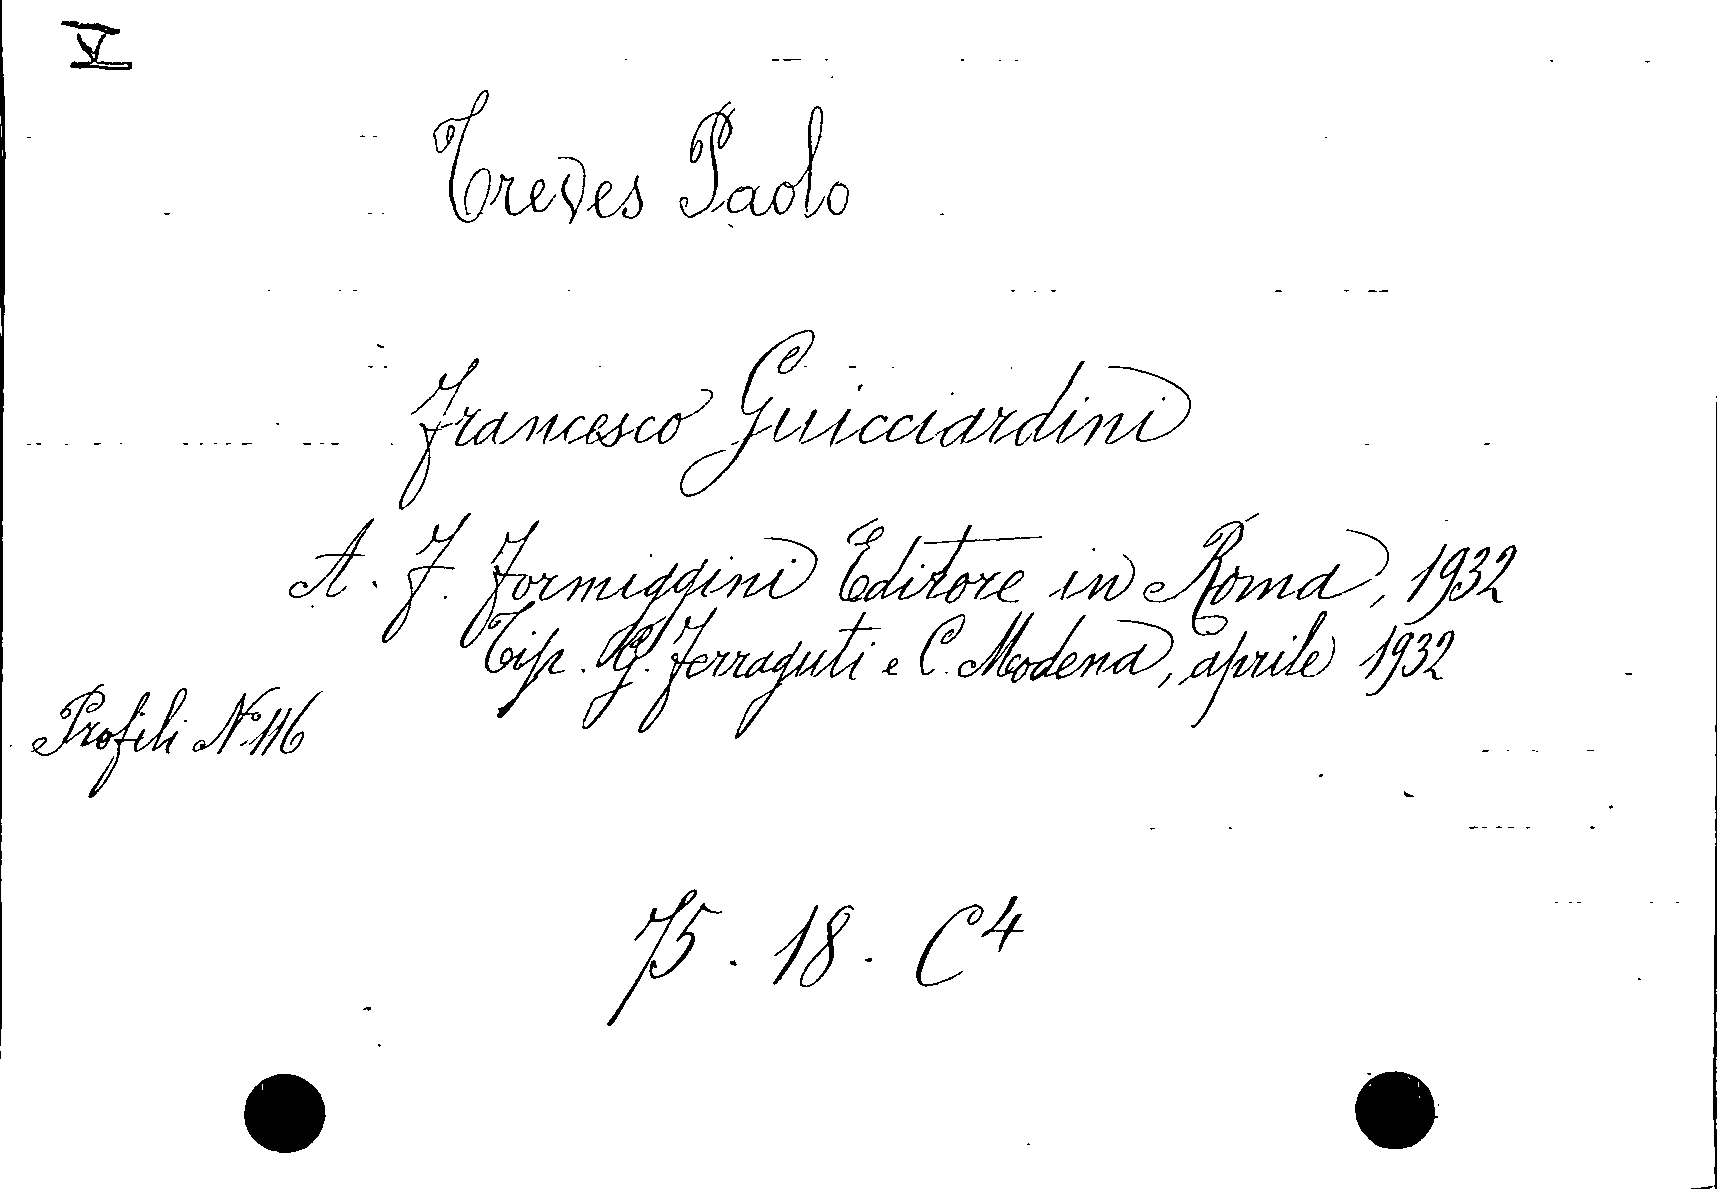 V
Treves Paolo
Francesco Guicciardini
A. F. Formiggini Editore in Roma, 1932
Tip. G. Ferraguti e C. Modena, aprile 1932
Profili N.° 116
75 . 18 . C4